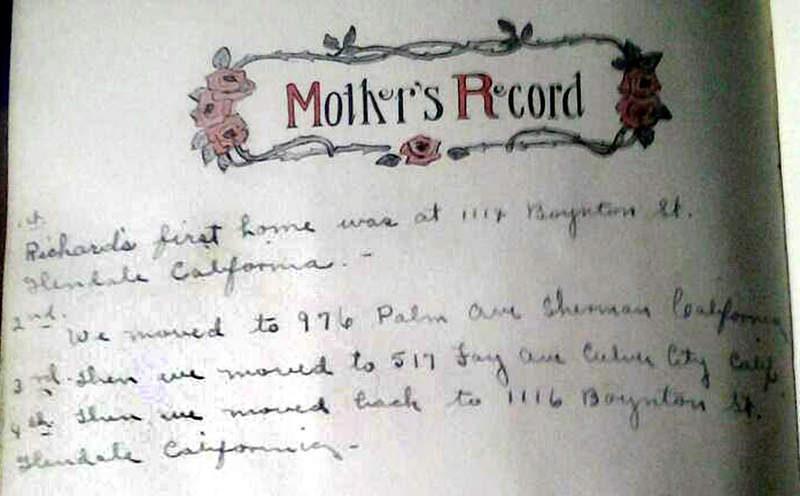 Mother's Record
1st.
Richard's first home was at Boynton St.
Glendale California. -
2nd.
We moved to 976 Palm Ave Sherman California
3rd. Then we moved to 517 Fay Ave Culver City Calif.
4th. Then we moved back to 1116 Boynton St.
Glendale California -